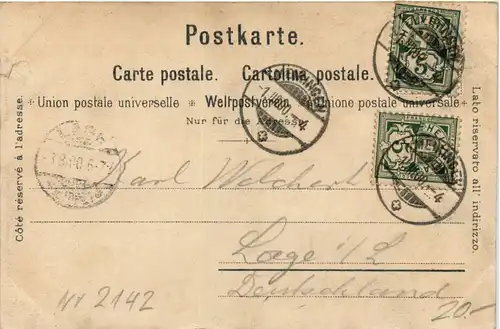 Postkarte.
Carte postale. Cartolina postale.
Union postale universelle Weltpostverein. Unione postale universale
Nur für die Adresse.
Côté réservé à l'adresse.
Lato riservato all' indirizzo.
5
5
MEIRINGEN
Karl Welchert
Lage i/L
Deutschland
NV 2142
20.-